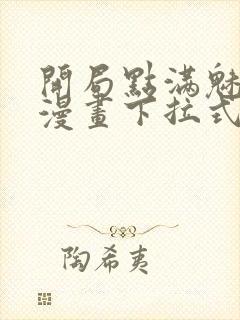 開局點滿魅
漫畫下拉式
陶希夷